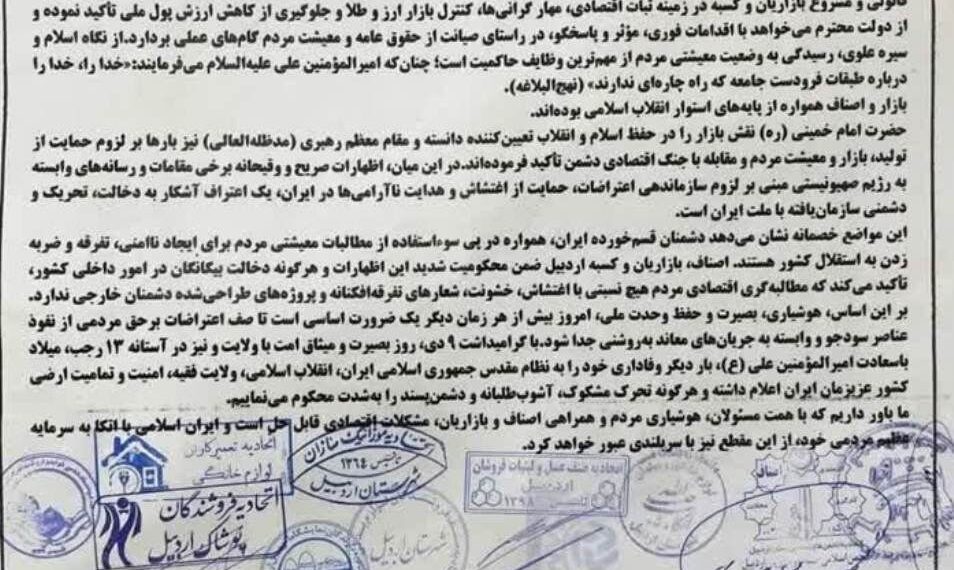 قانونی و مشروع بازاریان و کسبه در زمینه ثبات اقتصادی، مهار گرانی‌ها، کنترل بازار ارز و طلا و جلوگیری از کاهش ارزش پول ملی تأکید نموده و
از دولت محترم می‌خواهد با اقدامات فوری، مؤثر و پاسخگو، در راستای صیانت از حقوق عامه و معیشت مردم گام‌های عملی بردارد.از نگاه اسلام و
سیره علوی، رسیدگی به وضعیت معیشتی مردم از مهم‌ترین وظایف حاکمیت است؛ چنان‌که امیرالمؤمنین علی علیه‌السلام می‌فرمایند:«خدا را، خدا را
درباره طبقات فرودست جامعه که راه چاره‌ای ندارند» (نهج‌البلاغه).
بازار و اصناف همواره از پایه‌های استوار انقلاب اسلامی بوده‌اند.
حضرت امام خمینی (ره) نقش بازار را در حفظ اسلام و انقلاب تعیین‌کننده دانسته و مقام معظم رهبری (مدظله‌العالی) نیز بارها بر لزوم حمایت از
تولید، بازار و معیشت مردم و مقابله با جنگ اقتصادی دشمن تأکید فرموده‌اند.در این میان، اظهارات صریح و وقیحانه برخی مقامات و رسانه‌های وابسته
به رژیم صهیونیستی مبنی بر لزوم سازماندهی اعتراضات، حمایت از اغتشاش و هدایت ناآرامی‌ها در ایران، یک اعتراف آشکار به دخالت، تحریک و
دشمنی سازمان‌یافته با ملت ایران است.
این مواضع خصمانه نشان می‌دهد دشمنان قسم‌خورده ایران، همواره در پی سوءاستفاده از مطالبات معیشتی مردم برای ایجاد ناامنی، تفرقه و ضربه
زدن به استقلال کشور هستند. اصناف، بازاریان و کسبه اردبیل ضمن محکومیت شدید این اظهارات و هرگونه دخالت بیگانگان در امور داخلی کشور،
تأکید می‌کند که مطالبه‌گری اقتصادی مردم هیچ نسبتی با اغتشاش، خشونت، شعارهای تفرقه‌افکنانه و پروژه‌های طراحی‌شده دشمنان خارجی ندارد.
بر این اساس، هوشیاری، بصیرت و حفظ وحدت ملی، امروز بیش از هر زمان دیگر یک ضرورت اساسی است تا صف اعتراضات برحق مردمی از نفوذ
عناصر سودجو و وابسته به جریان‌های معاند به‌روشنی جدا شود.با گرامیداشت ۹ دی، روز بصیرت و میثاق امت با ولایت و نیز در آستانه ۱۳ رجب، میلاد
باسعادت امیرالمؤمنین علی (ع)، بار دیگر وفاداری خود را به نظام مقدس جمهوری اسلامی ایران، انقلاب اسلامی، ولایت فقیه، امنیت و تمامیت ارضی
کشور عزیزمان ایران اعلام داشته و هرگونه تحرک مشکوک، آشوب‌طلبانه و دشمن‌پسند را به‌شدت محکوم می‌نماییم.
ما باور داریم که با همت مسئولان، هوشیاری مردم و همراهی اصناف و بازاریان، مشکلات اقتصادی قابل حل است و ایران اسلامی با اتکا به سرمایه
عظیم مردمی خود، از این مقطع نیز با سربلندی عبور خواهد کرد.
اتحادیه تعمیرکاران
لوازم خانگی
سازان
تاسیس ۱۳۶۴
شهرستان اردبیل
اتحادیه صنف عسل و لبنیات فروشان
اردبیل
تاسیس ۱۳۹۸
اتحادیه فروشندگان
پوشاک اردبیل
شهرستان اردبیل